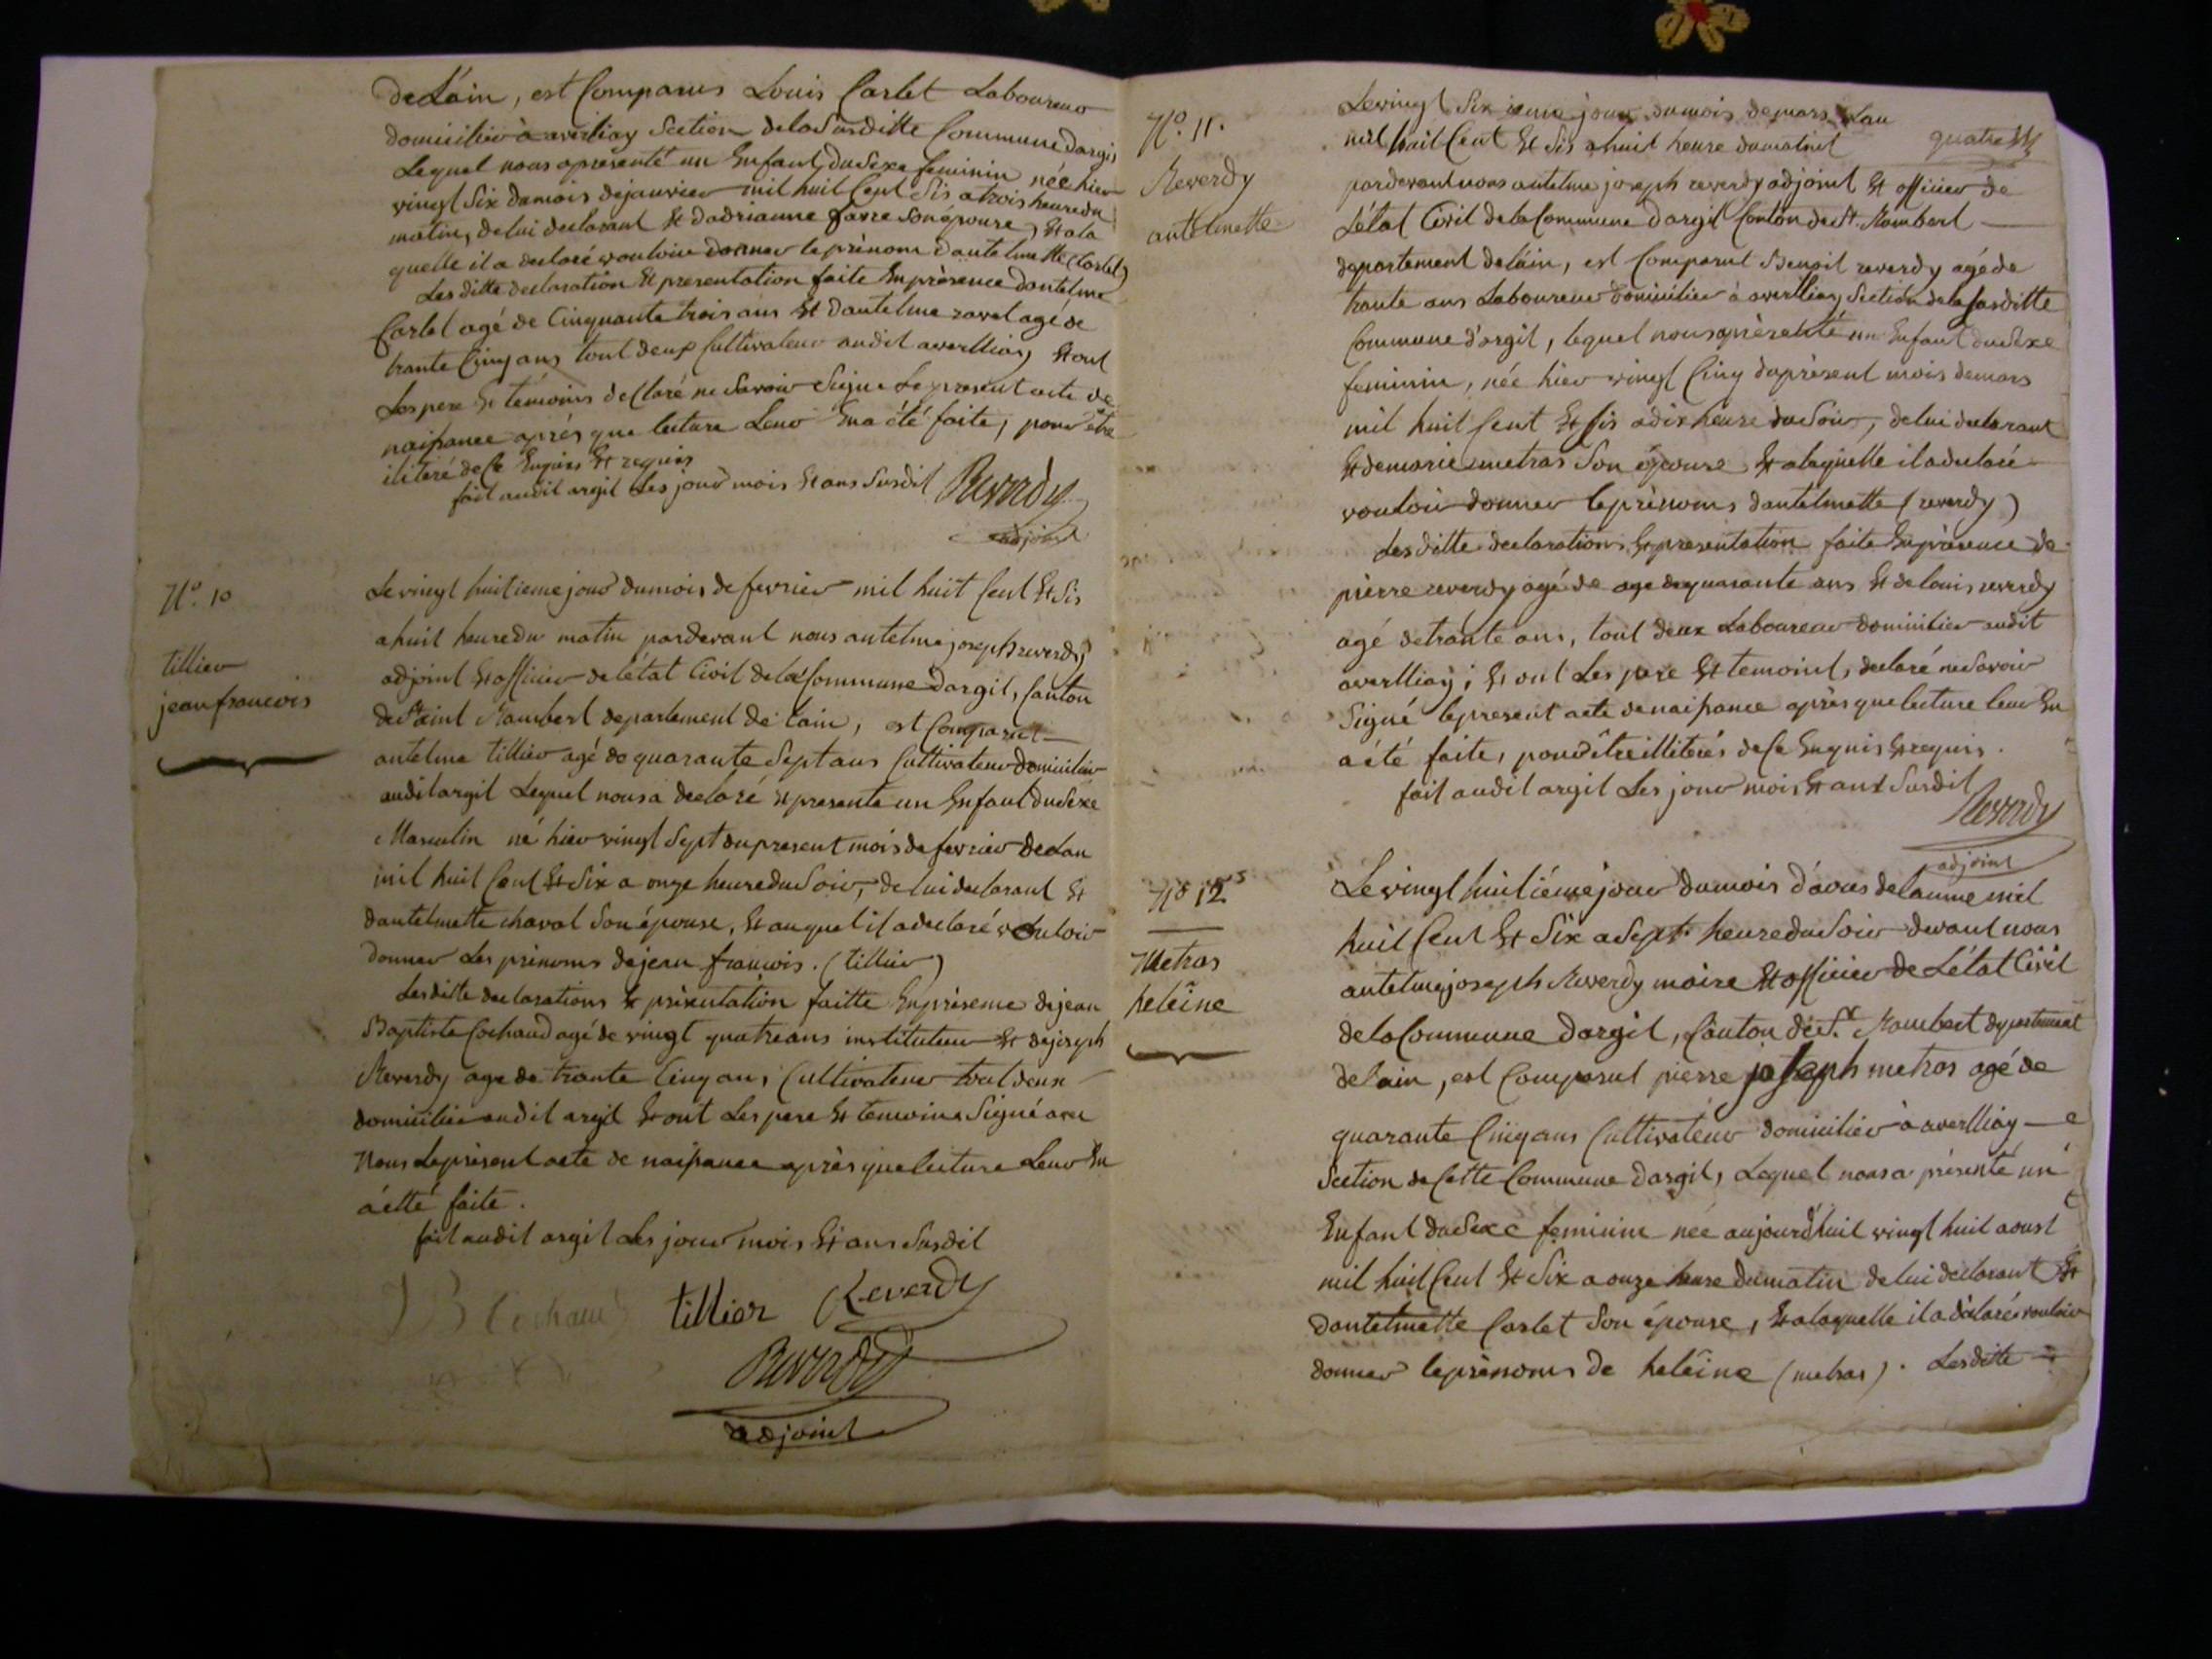 de Lain, est Comparus Louis Carlet Laboureur
domicilier à averliay Section dela Susditte Commune dargis
Lequel nous apresenté un Enfant du Sexe feminin née hier
vingt Six dumois dejanvier mil huit Cent Sis atrois heuredu
matin, de lui declarant Et dadrianne favre Son épouse, Et ala
quelle il a declaré vouloir donner le prénom dantelmette (Carlet)
Lesditte declaration Et presentation faite En présence dantelme
Carlet agé de Cinquante trois ans Et dantelme ravet agé de
trante Cinq ans tout deux Cultivateur audit averlliay Et ont
Les pere Et témoins declaré ne Savoir Signe Le present acte de
naissance aprés que lecture Leur En a été faite, pour être
ilitéré de Ce Enquis Et requis
fait audit argit Les jour mois Et ans Susdit Reverdy
adjoint
N.º 10
tillier
jean francois
Le vingt huitieme jour dumois de fevrier mil huit Cent Et Sis
ahuit heure du matin pardevant nous antelme joseph reverdy
adjoint Et officier de létat Civil dela Commune dargit, Canton
de Saint Rambert departement de Lain, est Comparut
antelme tillier agé de quarante Sept ans Cultivateur domicilier
audit argit Lequel nous a declaré Et presente un Enfant du Sexe
Masculin né hier vingt Sept du present mois de fevrier de Lan
mil huit Cent Et Six a onze heure du Soir, de lui declarant Et
dantelmette chaval Son épouse, Et auquel il a declaré vouloir
donner Les prénoms dejean francois. (tillier)
Lesditte declarations Et présentation faitte En présence dejean
Baptiste Cochaud agé de vingt quatre ans instituteur Et dejoseph
Reverdy age de trante Cinq ans Cultivateur tout deux
domicilier audit argit Et ont Les pere Et temoins Signé avec
Nous Le présent acte de naissance après que lecture Leur En
a étté faite.
fait audit argit Les jour mois Et ans Susdit
JB Cochaud tillier Reverdy
Reverdy
adjoint
N.º 11.
Reverdy
antelmette
Le vingt Sixieme jour dumois demars Lan
mil huit Cent Et Sis ahuit heure dumatint quatre
pardevant nous antelme joseph reverdy adjoint Et officier de
Létat Civil de la Commune dargit Conton de St. Rambert
departement delain, est Comparut Benoit reverdy agé de
trante ans Laboureur domicilier à averlliay Section dela Susditte
Commune d'argit, lequel nous apresenté un Enfant du Sexe
feminin, née hier vingt Cinq duprèsent mois demars
mil huit Cent Et Sis àdix heure du Soir, de lui declarant
Et demarie metras Son épouse Et alaquelle il a declaré
vouloir donner le prénoms dantelmette (reverdy)
Lesditte declarations Et presentation faite En présence de
pierre reverdy agé de age de quarante ans Et de louis reverdy
agé de trante ans, tout deux Laboureur domicilier audit
averlliay; Et ont Les pere Et temoint, declaré ne Savoir
Signé le present acte de naissance après que lecture leur En
a été faite, pour être illiterés de Ce Enquis Et requis.
fait audit argit Les jour mois Et ans Susdit
Reverdy
adjoint
Nº 12
Metras
heléine
Le vingt huitiéme jour dumois d'aous de lannné mil
huit Cent Et Six a Sept heure du Soir devant nous
antelme joseph Reverdy maire Et officier de Létat Civil
de la Commune dargit, Canton de St. Rambert departement
de lain, est Comparut pierre joseph metras agé de
quarante Cinq ans Cultivateur domicilier à averlliay
Section de Cette Commune dargit, Lequel nous a présenté un
Enfant du Sexe feminin née aujourd'huit vingt huit aoust
mil huit Cent Et Six a onze heure du matin de lui declarant Et
dantelmette Carlet Son épouse, Et alaquelle il a déclaré vouloir
donner le prénoms de heléine (metras). Lesditte